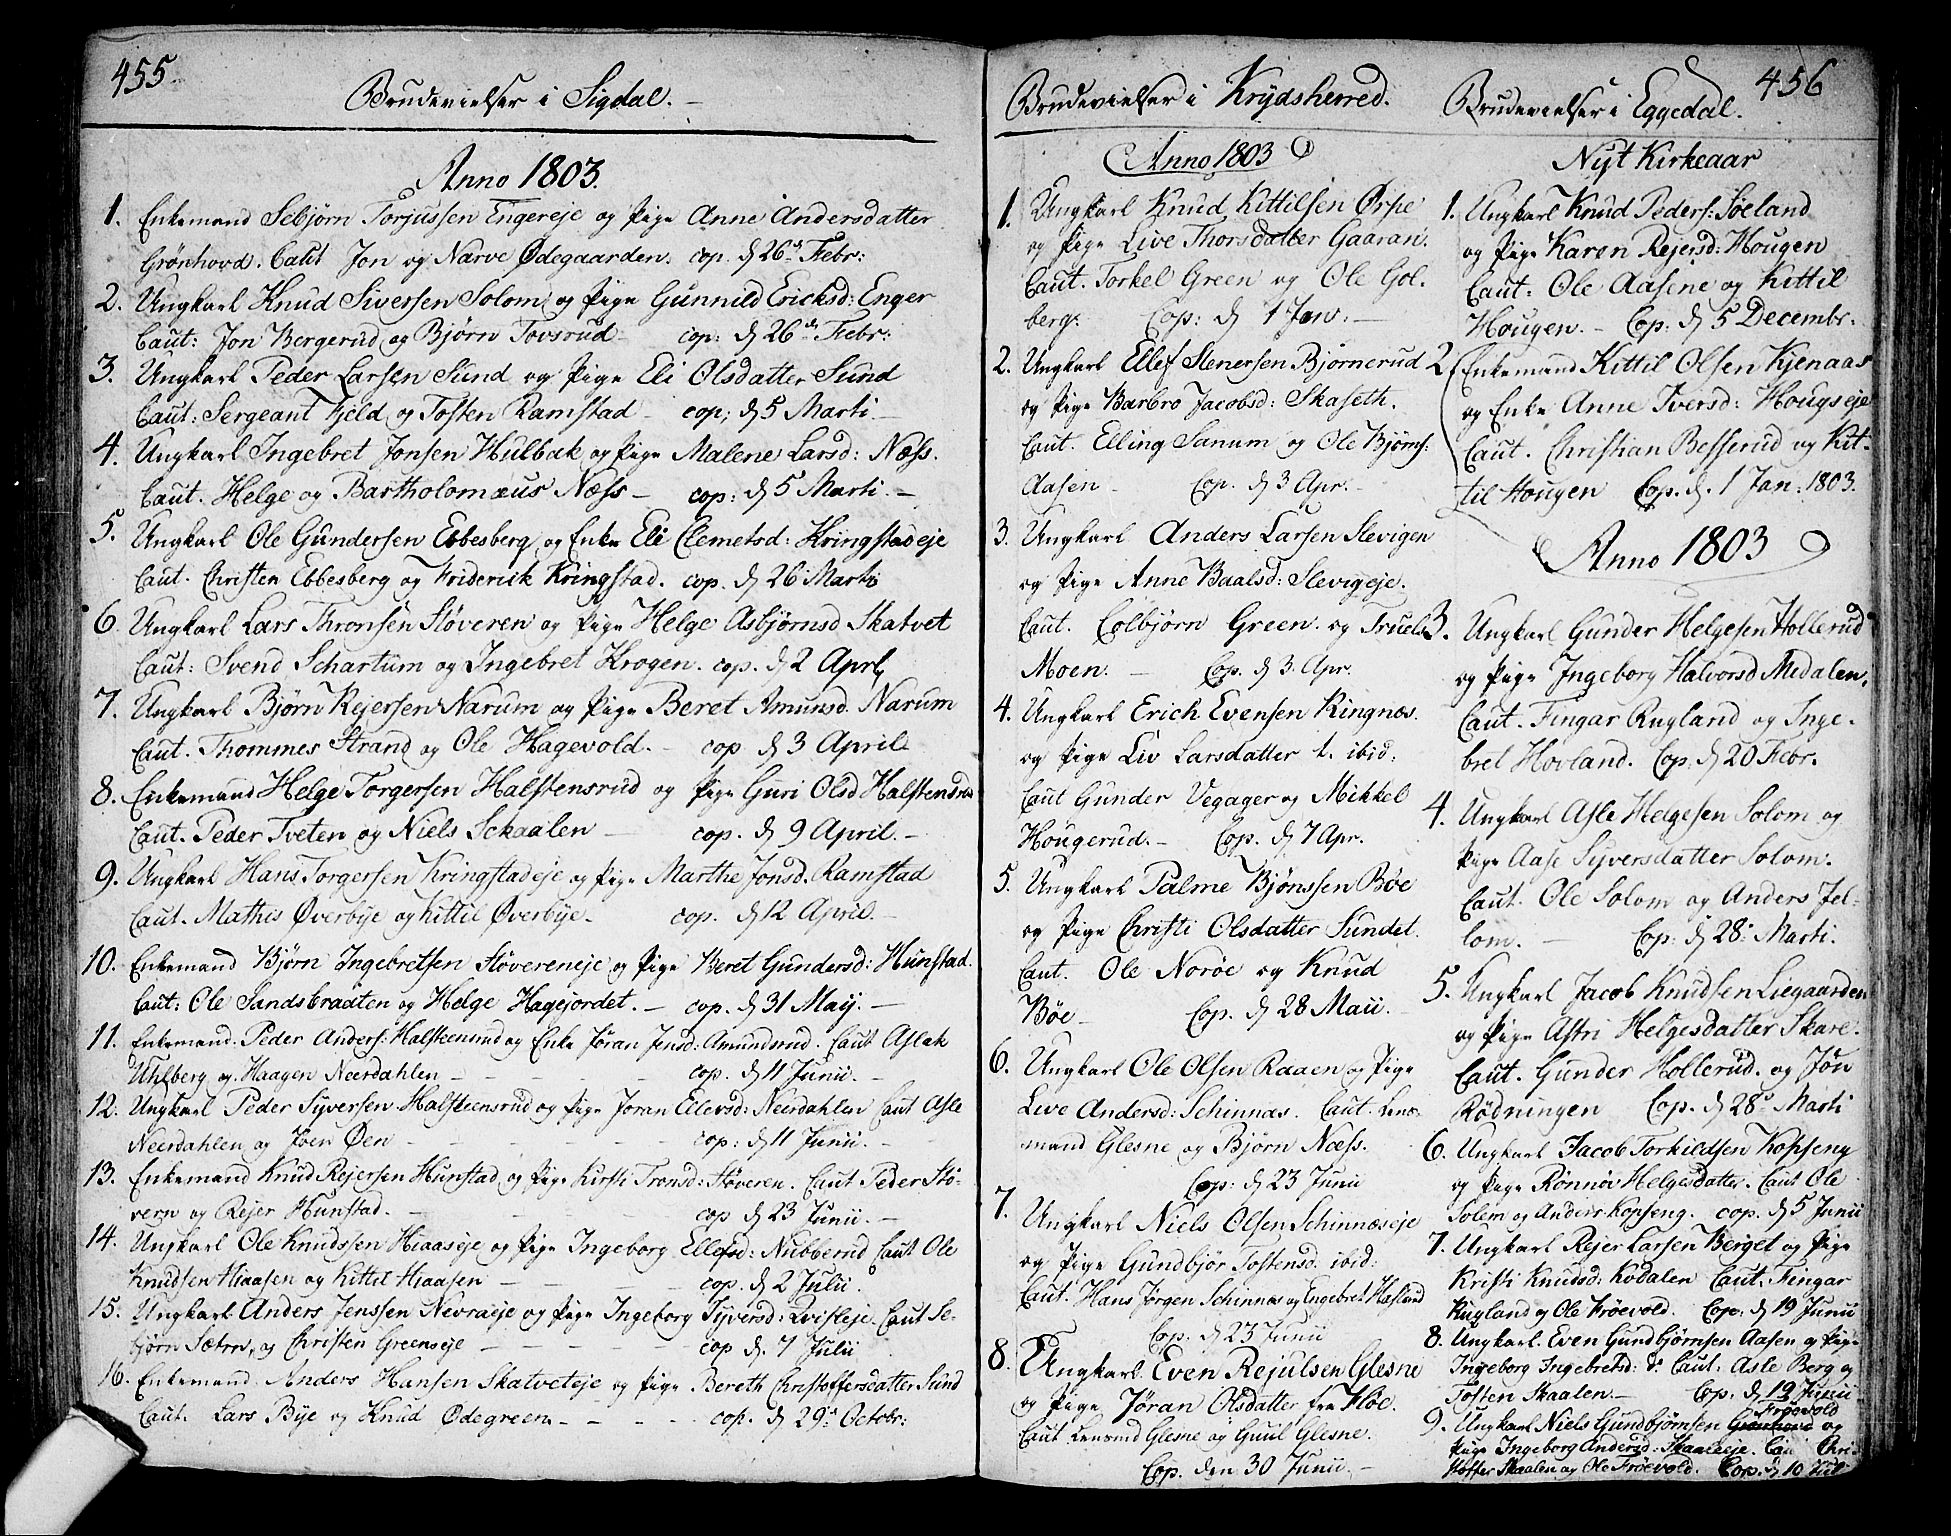 455
Brudevielser i Sigdal. –
Anno 1803.
1. Enkemand Sebjörn Torjussen Engereje og Pige Anne Andersdatter
Grönhovd. Caut Jon og Narve Ødegaarden. cop. d 26de Febr:
2. Ungkarl Knud Siversen Solom og Pige Gunnild Ericksd: Enger
Caut: Jon Bergerud og Bjørn Tovsrud – cop: d 26de Febr:
3. Ungkarl Peder Larsen Sund og Pige Eli Olsdatter Sund
Caut: Sergeant Fjeld og Tosten Ramstad – cop; d 5 Marti –
4. Ungkarl Ingebret Jonsen Hulbak og Pige Malene Larsd: Næss.
Caut. Helge og Bartholomæus Næss – cop: d 5 Marti. –
5. Ungkarl Ole Gundersen Ebbesberg og Enke Eli Clemetsd: Kringstadeje
Caut. Christen Ebbesberg og Friderick Kringstad. cop. d 26 Marti
6. Ungkarl Lars Thronsen Støveren og Pige Helge Asbjørnsd Skatvet
Caut: Svend Schartum og Ingebret Krogen. cop. d 2 April
7. Ungkarl Bjørn Rejersen Narum og Pige Beret Amunsd. Narum
Caut. Thommes Strand og Ole Hagevold. cop d 3 April
8. Enkemand Helge Torgersen Halstensrud og Pige Guri Olsd Halstensrud
Caut. Peder Tveten og Niels Schaalen – cop. d 9 April. –
9. Ungkarl Hans Torgersen Kringstadeje og Pige Marthe Jonsd. Ramstad
Caut. Mathis Øverbye og Kittil Øverbye. cop. d 12 April. –
10. Enkemand Bjørn Ingebretsen Støvereneje og Pige Beret Gundersd: Hunstad.
Caut: Ole Sandsbraaten og Helge Hagejordet. – cop. d 31 Maij. –
11. Enkemand. Peder Anders: Halsteensrud og Enke Jøran Jensd: Amundsrud. Caut Aslak
Uhlberg og Haagen Neerdahlen – cop. d 11 Junii. –
12. Ungkarl Peder Syversen Halsteensrud og Pige Joran Ellevsd: Neerdahlen Caut Asle
Neerdahlen og Joen Øen – cop: d 11 Junii. –
13. Enkemand Knud Rejersen Hunstad og Pige Kirsti Tronsd: Støveren. Caut Peder Stø-
vern og Rejer Hunstad. – cop d 23 Junii. –
14. Ungkarl Ole Knudssen Hiaaseje og Pige Ingeborg Ellefsd: Nubberud Caut Ole
Knudsen Hiaasen og Kittil Hiaasen – cop. d 2 Julii.
15. Ungkarl Anders Jenssen Nevraeje og Pige Ingeborg Syversd: Qvisleje. Caut Se-
bjørn Sætrn, og Christen Greenseje – cop d. 7 Julii
16. Enkemand. Anders Hansen Skatveteje og Pige Bereth Christoffersdatter Sund
Caut. Lars Bye og Knud Ødegreen. – cop. d 29de Octobr:
Brudevielser i Krydsherred.
Anno 1803
1. Ungkarl Knud Kittilsen Ørpe
og Pige Live Thorsdatter Gaaran.
Caut. Torkel Green og Ole Gol-
berg. Cop: d 1 Jan. –
2. Ungkarl Ellef Stenersen Bjørnerud
og Pige Barbro Jacobsd: Skaseth.
Caut. Elling Sanum og Ole Bjørns:
Aasen – Cop. d 3 Apr. –
3. Ungkarl Anders Larsen Slevigen
og Pige Anne Baalsd: Slevigeje.
Caut. Colbjørn Green. og Truels
Moen. – Cop. d 3. Apr.
4. Ungkarl Erich Evensen Ringnæs.
og Pige Liv Larsdatter t. ibid:
Caut Gunder Vegager og Mikkel
Hougerud. – Cop. d 7 Apr.
5. Ungkarl Palme Bjønssen Bøe
og Pige Christi Olsdatter Sundet.
Caut. Ole Norøe og Knud
Bøe – Cop. d 28 Maii.
6. Ungkarl Ole Olsen Raaen og Pige
Live Andersd: Schinnæs. Caut. Lens-
mand Glesne og Bjørn Næss.
Cop: d 23 Junii
7. Ungkarl Niels Olsen Schinnæseje
og Pige Gundbjør Tostensd. ibid:
Caut. Hans Jørgen Schinnæs og Engebret Hæsland
Cop: d 23 Junii
8. Ungkarl. Even Rejulsen Glesne
og Pige Jöran Olsdatter fra Høe.
Caut Lensmd Glesne og Guul Glesne.
Cop. den 30 Junii. –
456
Brudevielser i Eggedal.
Nyt Kirkeaar
1. Ungkarl Knud Peders: Søeland
og Pige Karen Rejersd: Hougen
Caut: Ole Aasene og Kittil
Hougen. – Cop: d 5 Decembr.
2. Enkemand Kittil Olsen Kjenaas
og Enke Anne Iversd: Hougseje
Caut. Christian Besserud og Kit-
til Hougen Cop. d. 1 Jan: 1803.
Anno 1803
3. Ungkarl Gunder Helgesen Hollerud
og Pige Ingeborg Halvorsd Medalen.
Caut. Fingar Rugland og Inge-
bret Hovland. Cop: d 20 Febr.
4. Ungkarl Asle Helgesen Solom og
Pige Aase Syversdatter Solom.
Caut. Ole Solom og Anders Jel-
lom. – Cop: d 28de Marti.
5. Ungkarl Jacob Knudsen Liegaarden
og Pige Astri Helgesdatter Skare.
Caut. Gunder Hollerud. og Jøn
Rödningen Cop. d 28de Marti
6. Ungkarl Jacob Torkildsen Kopseng
og Pige Rønnöv Helgesdatter. Caut Ole
Solem og Anders Kopseng. cop. d 5 Junii
7. Ungkarl Rejer Larsen Berget og Pige
Kristi Knudsd: Kodalen Caut: Fingar
Rugland og Ole Frøevold. Cop: d 19 Junii
8. Ungkarl. Even Gundbjørnsen Aasen og Pige
Ingeborg Ingebretsd: do Caut: Asle Berg og
Tosten Skaalen. – Cop: d 19 Junii
Frøevold
9. Ungkarl Niels Gundbjørnsen og
Pige Ingeborg Andersd: Skaaleeje. Cau Chri-
stoffer Skaalen og Ole Frøevold. Cop. d 10 Juli